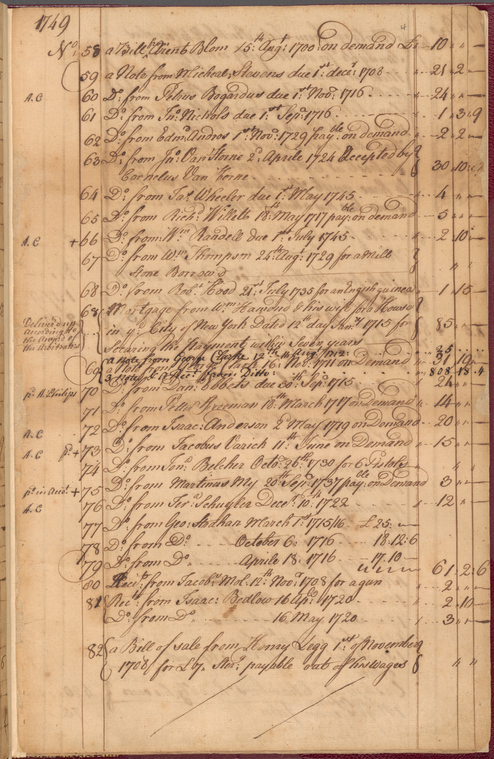 1749
No. 58 a Bill Dient Blom 15th Augt 1700 on demand £ 10 " —
59 a Note from Micheal Stevens due 1st decr 1708 " 21 2 —
A.C 60 Do from Petrus Bogardus due 1st Novr 1716 " 24 " —
61 Do from Jno Nichols due 1st Sepr 1716 " 1 3 9
62 Do from Edmd Andros 1st Novr 1729 payble on demand " 2 2 —
63 Do from Jno Van Horne 2d Aprile 1724 Accepted by
Cornelius Van Horne 30 10
64 Do from Jas Wheeler due 1st May 1745 " 4 " —
65 Do from Richd Willets 18th May 1717 payble on demand 3 " —
A.C + 66 Do from Wm Randell due 1st July 1745 " 2 10
67 Do from Wm Thompson 24th Augt 1729 for a Mill
Stone Borrowed " "
68 Do from Robt Hoed 21st July 1735 for an English guinea " 1 15 —
68 Mortgage from Wm Hamond & his wife for a House
in ye City of New York Dated 12 day 1715 for 85 " —
Securing the Payment within Seven years
Deliver'd up
according to
the Award of
the Arbitrators
a Note from George Clarke 12th Augt 25
69 16 Novr 1711 on Demand 51 19
3 Ditto 808 18 4
pd A Philips 70 Do from Danl Dobeshs due 20th Sepr 1715 " 24 " —
71 Do from Petrus Breeman 18th March 1717 on Demand " 14 " —
A.C 72 Do from Isaac Anderson 2d May 1719 on Demand 20 " —
A.C pd + 73 Do from Jacobus Varick 11th June on Demand " 15 " —
74 Do from Jonn Belcher Octo. 26th 1730 for 6 Pistoles " "
+ 75 Do from Martinus My 20th Sepr 1737 payble on Demand 3 " —
A.C 76 Do from Fers Schuyler Decr 10th 1722 " 12 " —
77 Do from Geo: Strahan March 1st 1715/16 £ 25: —
78 Do from Do October 6: 1716 18:12:6
79 Do from Do Aprile 18: 1716 17.10
61 2:6
80 Recit from Jacob Mol 12th Novr 1708 for a gun " 2 "
81 Rect from Isaac Bedlow 16 Apr 1720 " 2 10 —
Do from Do 16 May 1720 " 3 " —
82 a Bill of sale from Henry Legg 1st of November
1708 for £ 7. payable out of his Wages " "